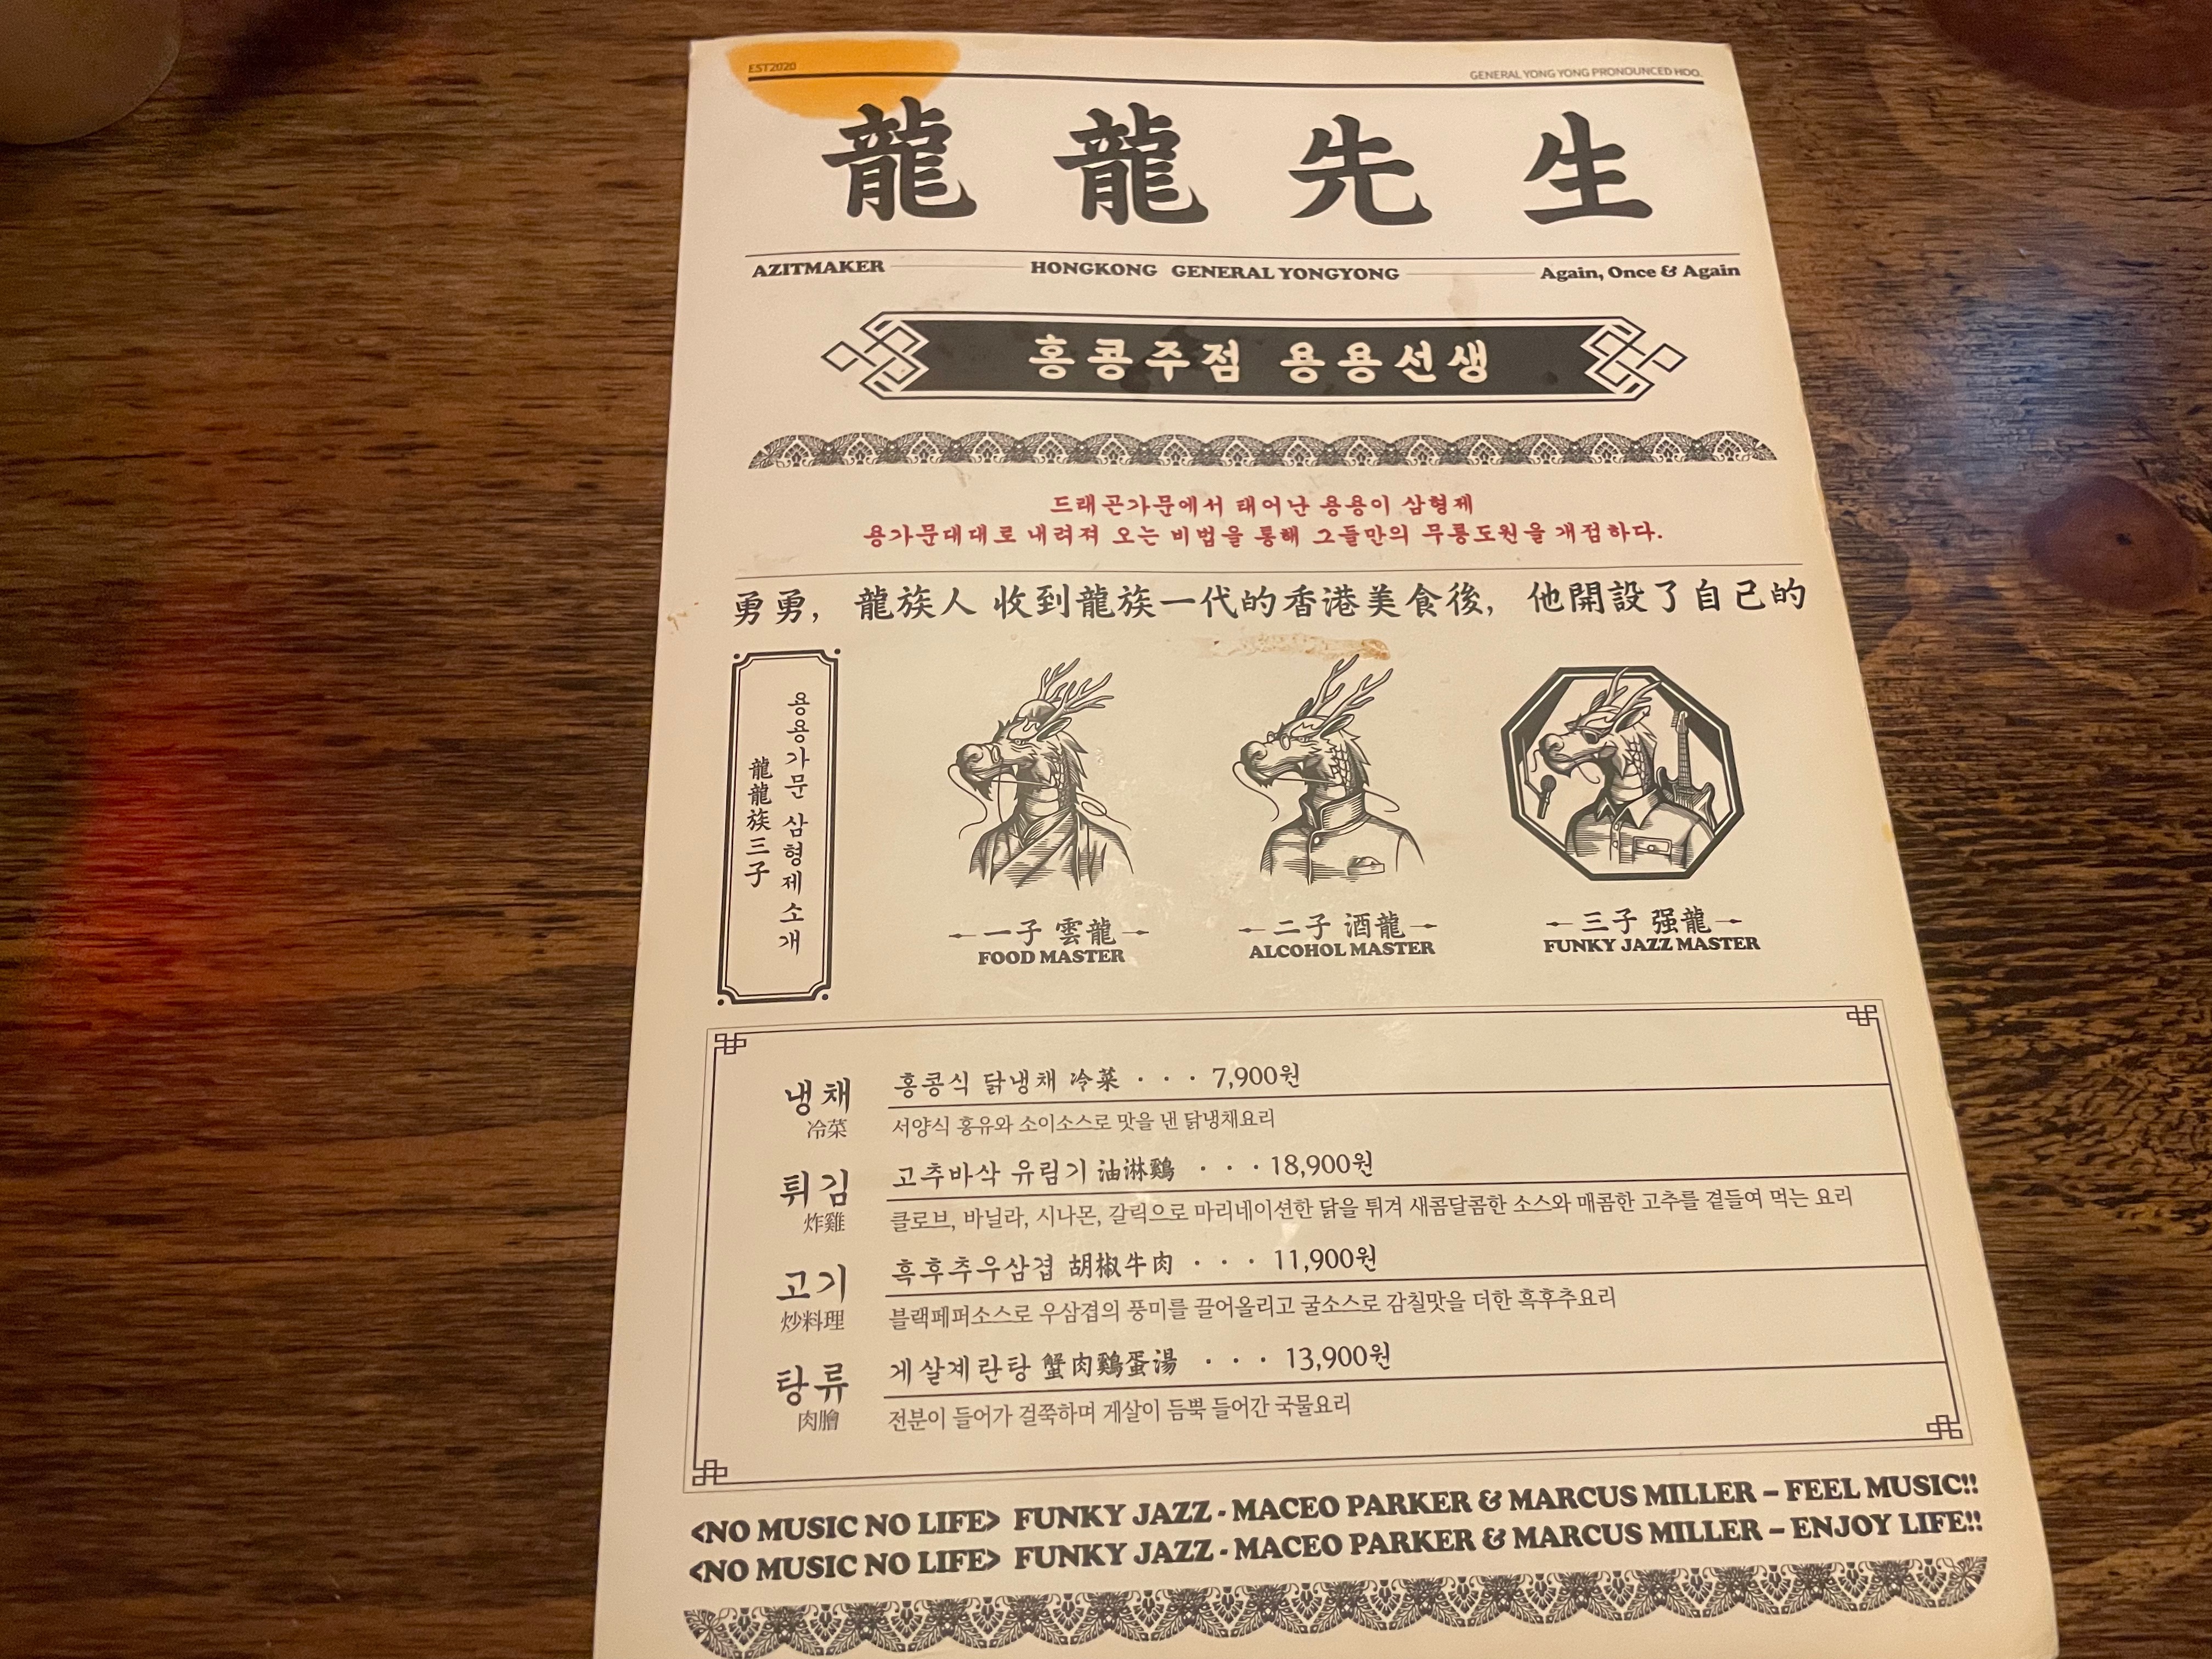 EST2020
GENERAL YONG YONG PRONOUNCED HOO.
龍龍先生
AZITMAKER HONGKONG GENERAL YONGYONG Again, Once & Again
홍콩주점 용용선생
드래곤가문에서 태어난 용용이 삼형제
용가문대대로 내려져 오는 비법을 통해 그들만의 무릉도원을 개점하다.
勇勇, 龍族人 收到龍族一代的香港美食後, 他開設了自己的
용용가문 삼형제 소개
龍龍族三子
一子 雲龍
FOOD MASTER
二子 酒龍
ALCOHOL MASTER
三子 强龍
FUNKY JAZZ MASTER
냉채
冷菜
홍콩식 닭냉채 冷菜 · · · 7,900원
서양식 홍유와 소이소스로 맛을 낸 닭냉채요리
튀김
炸雞
고추바삭 유림기 油淋鷄 · · · 18,900원
클로브, 바닐라, 시나몬, 갈릭으로 마리네이션한 닭을 튀겨 새콤달콤한 소스와 매콤한 고추를 곁들여 먹는 요리
고기
炒料理
흑후추우삼겹 胡椒牛肉 · · · 11,900원
블랙페퍼소스로 우삼겹의 풍미를 끌어올리고 굴소스로 감칠맛을 더한 흑후추요리
탕류
肉膾
게살계란탕 蟹肉鷄蛋湯 · · · 13,900원
전분이 들어가 걸쭉하며 게살이 듬뿍 들어간 국물요리
<NO MUSIC NO LIFE> FUNKY JAZZ - MACEO PARKER & MARCUS MILLER – FEEL MUSIC!!
<NO MUSIC NO LIFE> FUNKY JAZZ - MACEO PARKER & MARCUS MILLER – ENJOY LIFE!!